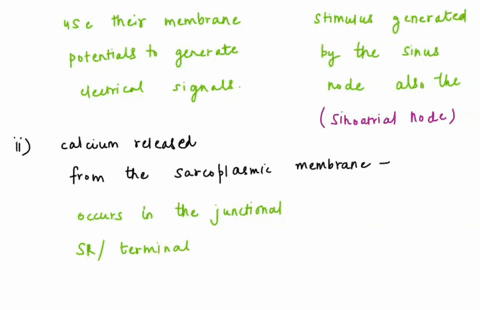 use their membrane
potentials to generate
electrical signals.
stimulus generated
by the sinus
node also the
(sinoatrial node)
ii) calcium released
from the sarcoplasmic membrane -
occurs in the junctional
SR/ terminal